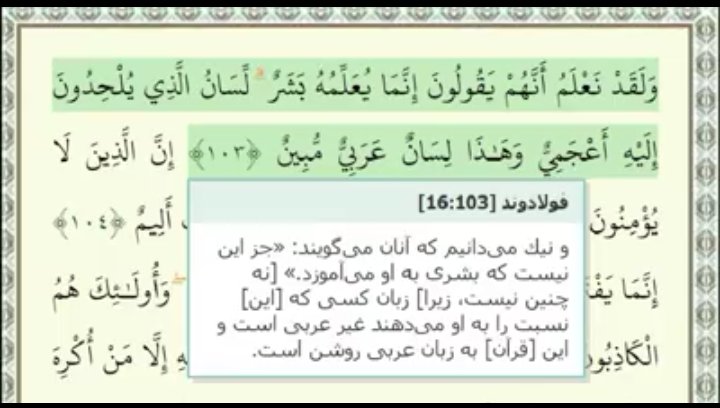 وَلَقَدْ نَعْلَمُ أَنَّهُمْ يَقُولُونَ إِنَّمَا يُعَلِّمُهُ بَشَرٌ ۗ لِّسَانُ الَّذِي يُلْحِدُونَ
إِلَيْهِ أَعْجَمِيٌّ وَهَـٰذَا لِسَانٌ عَرَبِيٌّ مُّبِينٌ ﴿١٠٣﴾ إِنَّ الَّذِينَ لَا
يُؤْمِنُونَ أَلِيمٌ ﴿١٠٤﴾
فولادوند [16:103]
و نیك می‌دانیم که آنان می‌گویند: «جز این
نیست که بشری به او می‌آموزد.» [نه
چنین نیست، زیرا] زبان کسی که [این]
نسبت را به او می‌دهند غیر عربی است و
این [قرآن] به زبان عربی روشن است.
إِنَّمَا وَأُولَـٰئِكَ هُمُ
الْكَاذِبُونَ إِلَّا مَنْ أُكْرِهَ